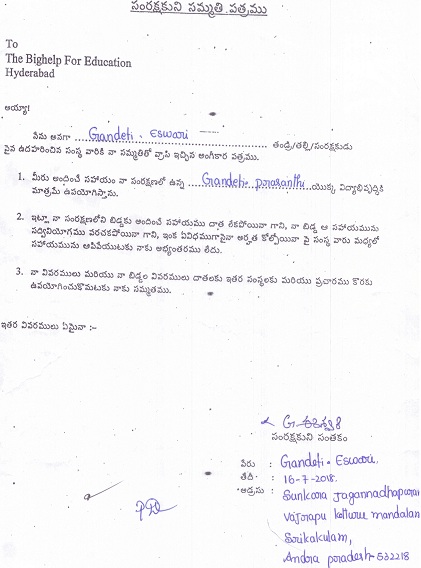 సంరక్షకుని సమ్మతి పత్రము
To
The Bighelp For Education
Hyderabad
అయ్యా!
నేను అనగా ....Grandeti . Eswari.... తండ్రి/తల్లి/సంరక్షకుడు
పైన ఉదహరించిన సంస్థ వారికి నా సమ్మతితో వ్రాసి ఇచ్చిన అంగీకార పత్రము.
1. మీరు అందించే సహాయం నా సంరక్షణలో ఉన్న ....Grandeti. prasanthi....యొక్క విద్యాభివృద్ధికి
మాత్రమే ఉపయోగిస్తాను.
2. ఇట్లా నా సంరక్షణలోని బిడ్డకు అందించే సహాయము దాత లేకపోయినా గాని, నా బిడ్డ ఆ సహాయమును
సద్వినియోగము పరచకపోయినా గాని, ఇంక ఏవిధముగానైనా అర్హత కోల్పోయినా పై సంస్థ వారు మధ్యలో
సహాయమును ఆపివేయుటకు నాకు అభ్యంతరము లేదు.
3. నా వివరములు మరియు నా బిడ్డల వివరములు దాతలకు ఇతర సంస్థలకు మరియు ప్రచారము కొరకు
ఉపయోగించుకొనుటకు నాకు సమ్మతము.
ఇతర వివరములు ఏమైనా :-
G. ఈశ్వరి
సంరక్షకుని సంతకం
పేరు : Grandeti. Eswari.
తేదీ : 16-7-2018.
అడ్రసు : Sunkara Jagannadhapuram
Vajrapu kotturu mandalam
Srikakulam,
Andra pradesh-532218